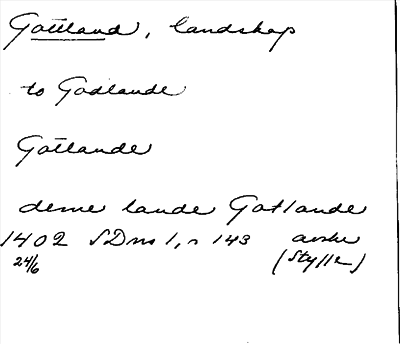 Gottland, landskap
to Godlande
Gotlande
deme lande Gotlande
1402 SDns 1, n 143 avskr
24/6 (Styffe)